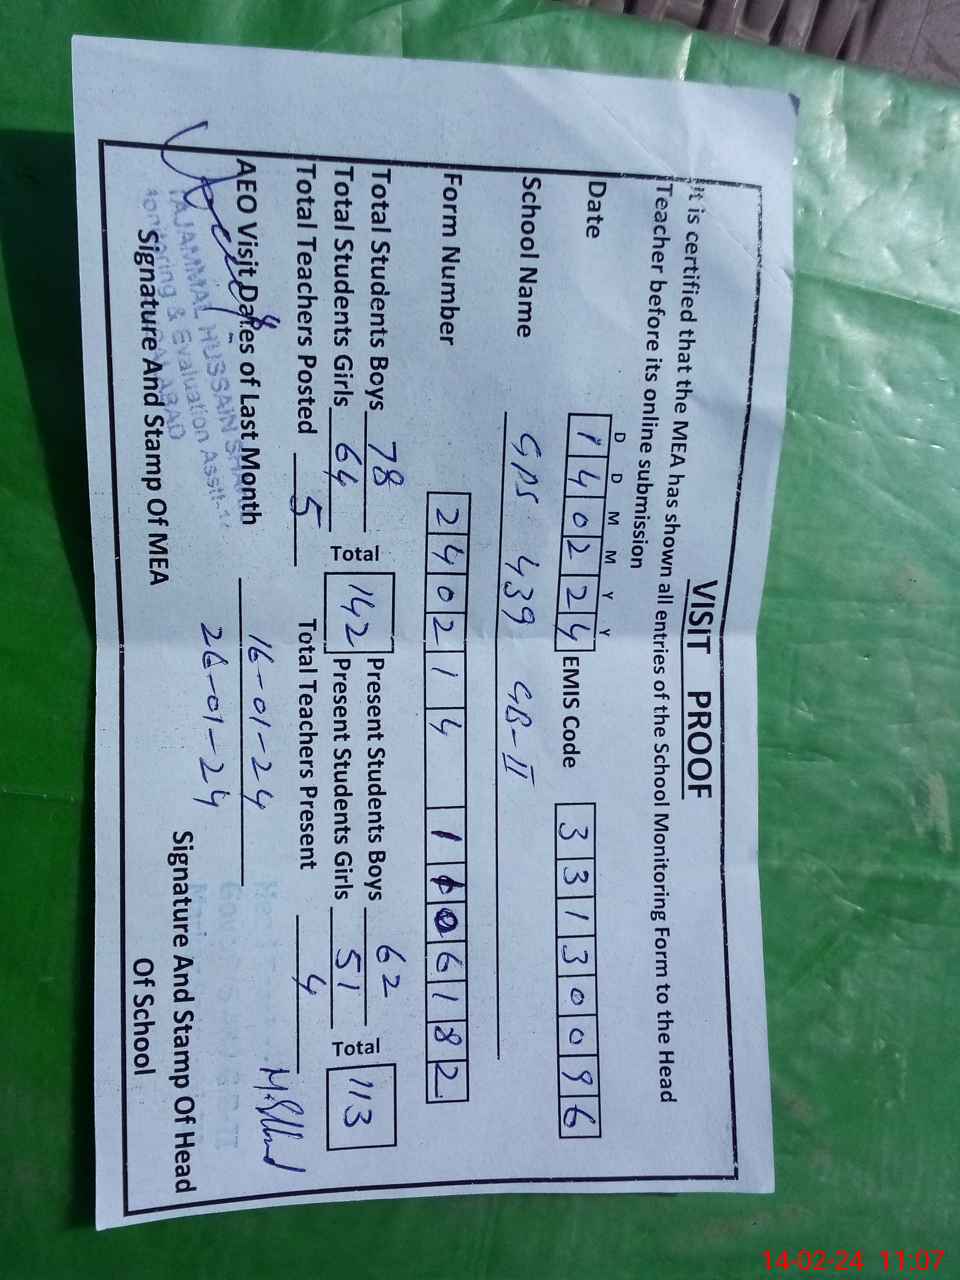 VISIT PROOF
It is certified that the MEA has shown all entries of the School Monitoring Form to the Head
Teacher before its online submission
D D M M Y Y
Date 140224 EMIS Code 33130096
School Name GPS 439 GB-II
Form Number 240214 1106182
Total Students Boys 78 Present Students Boys 62
Total Students Girls 64 Total 142 Present Students Girls 51 Total 113
Total Teachers Posted 5 Total Teachers Present 4
AEO Visit Dates of Last Month 16-01-24
26-01-24
TAJAMMAL HUSSAIN
Monitoring & Evaluation Assit
Signature And Stamp Of MEA
Signature And Stamp Of Head
Of School
14-02-24 11:07